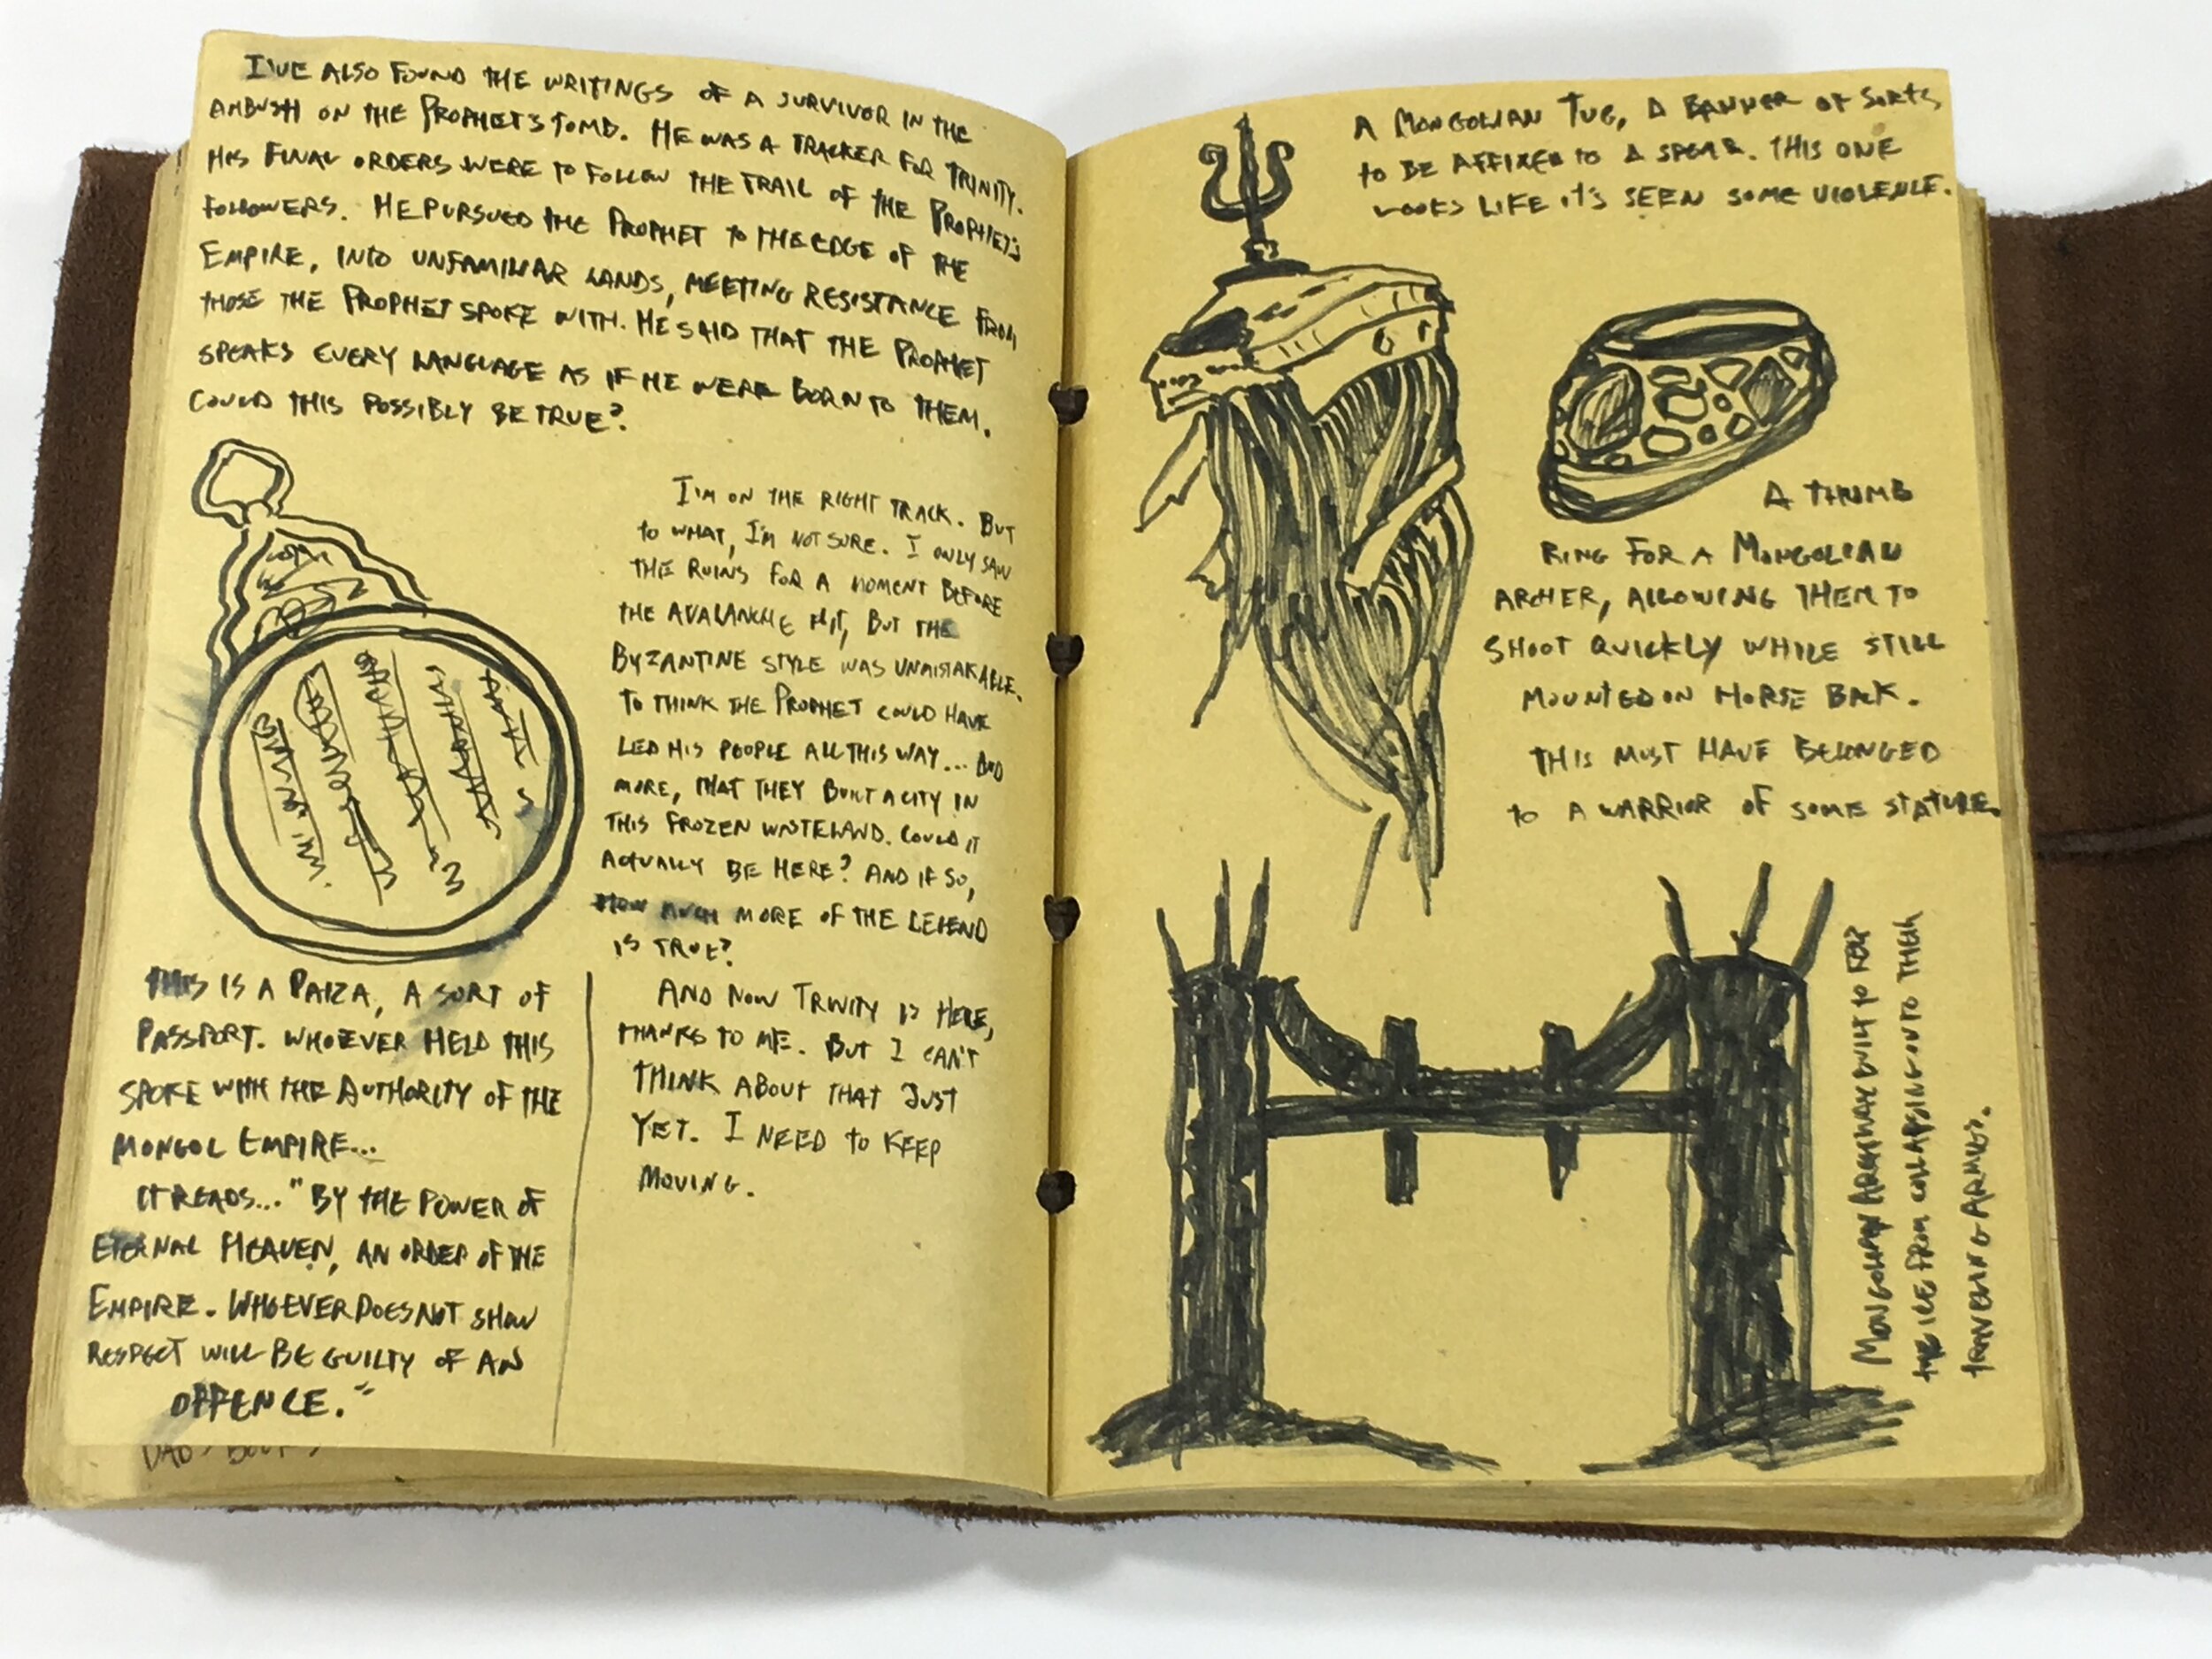 I'VE ALSO FOUND THE WRITINGS OF A SURVIVOR IN THE
AMBUSH ON THE PROPHET'S TOMB. HE WAS A TRACKER FOR TRINITY.
HIS FINAL ORDERS WERE TO FOLLOW THE TRAIL OF THE PROPHET'S
FOLLOWERS. HE PURSUED THE PROPHET TO THE EDGE OF THE
EMPIRE, INTO UNFAMILIAR LANDS, MEETING RESISTANCE FROM
THOSE THE PROPHET SPOKE WITH. HE SAID THAT THE PROPHET
SPEAKS EVERY LANGUAGE AS IF HE WERE BORN TO THEM.
COULD THIS POSSIBLY BE TRUE?
I'M ON THE RIGHT TRACK. BUT
TO WHAT, I'M NOT SURE. I ONLY SAW
THE RUINS FOR A MOMENT BEFORE
THE AVALANCHE HIT, BUT THE
BYZANTINE STYLE WAS UNMISTAKABLE.
TO THINK THE PROPHET COULD HAVE
LED HIS PEOPLE ALL THIS WAY... AND
MORE, THAT THEY BUILT A CITY IN
THIS FROZEN WASTELAND. COULD IT
ACTUALLY BE HERE? AND IF SO,
HOW MUCH MORE OF THE LEGEND
IS TRUE?
AND NOW TRINITY IS HERE,
THANKS TO ME. BUT I CAN'T
THINK ABOUT THAT JUST
YET. I NEED TO KEEP
MOVING.
THIS IS A PAIZA, A SORT OF
PASSPORT. WHOEVER HELD THIS
SPOKE WITH THE AUTHORITY OF THE
MONGOL EMPIRE...
IT READS... "BY THE POWER OF
ETERNAL HEAVEN, AN ORDER OF THE
EMPIRE. WHOEVER DOES NOT SHOW
RESPECT WILL BE GUILTY OF AN
OFFENCE."
A MONGOLIAN TUG, A BANNER OF SORTS
TO BE AFFIXED TO A SPEAR. THIS ONE
LOOKS LIKE IT'S SEEN SOME VIOLENCE.
A THUMB
RING FOR A MONGOLIAN
ARCHER, ALLOWING THEM TO
SHOOT QUICKLY WHILE STILL
MOUNTED ON HORSE BACK.
THIS MUST HAVE BELONGED
TO A WARRIOR OF SOME STATURE.
MONGOLIAN ARCHWAY BUILT TO KEEP
THE ICE FROM COLLAPSING ONTO THEIR
TRAVELING ARMIES.